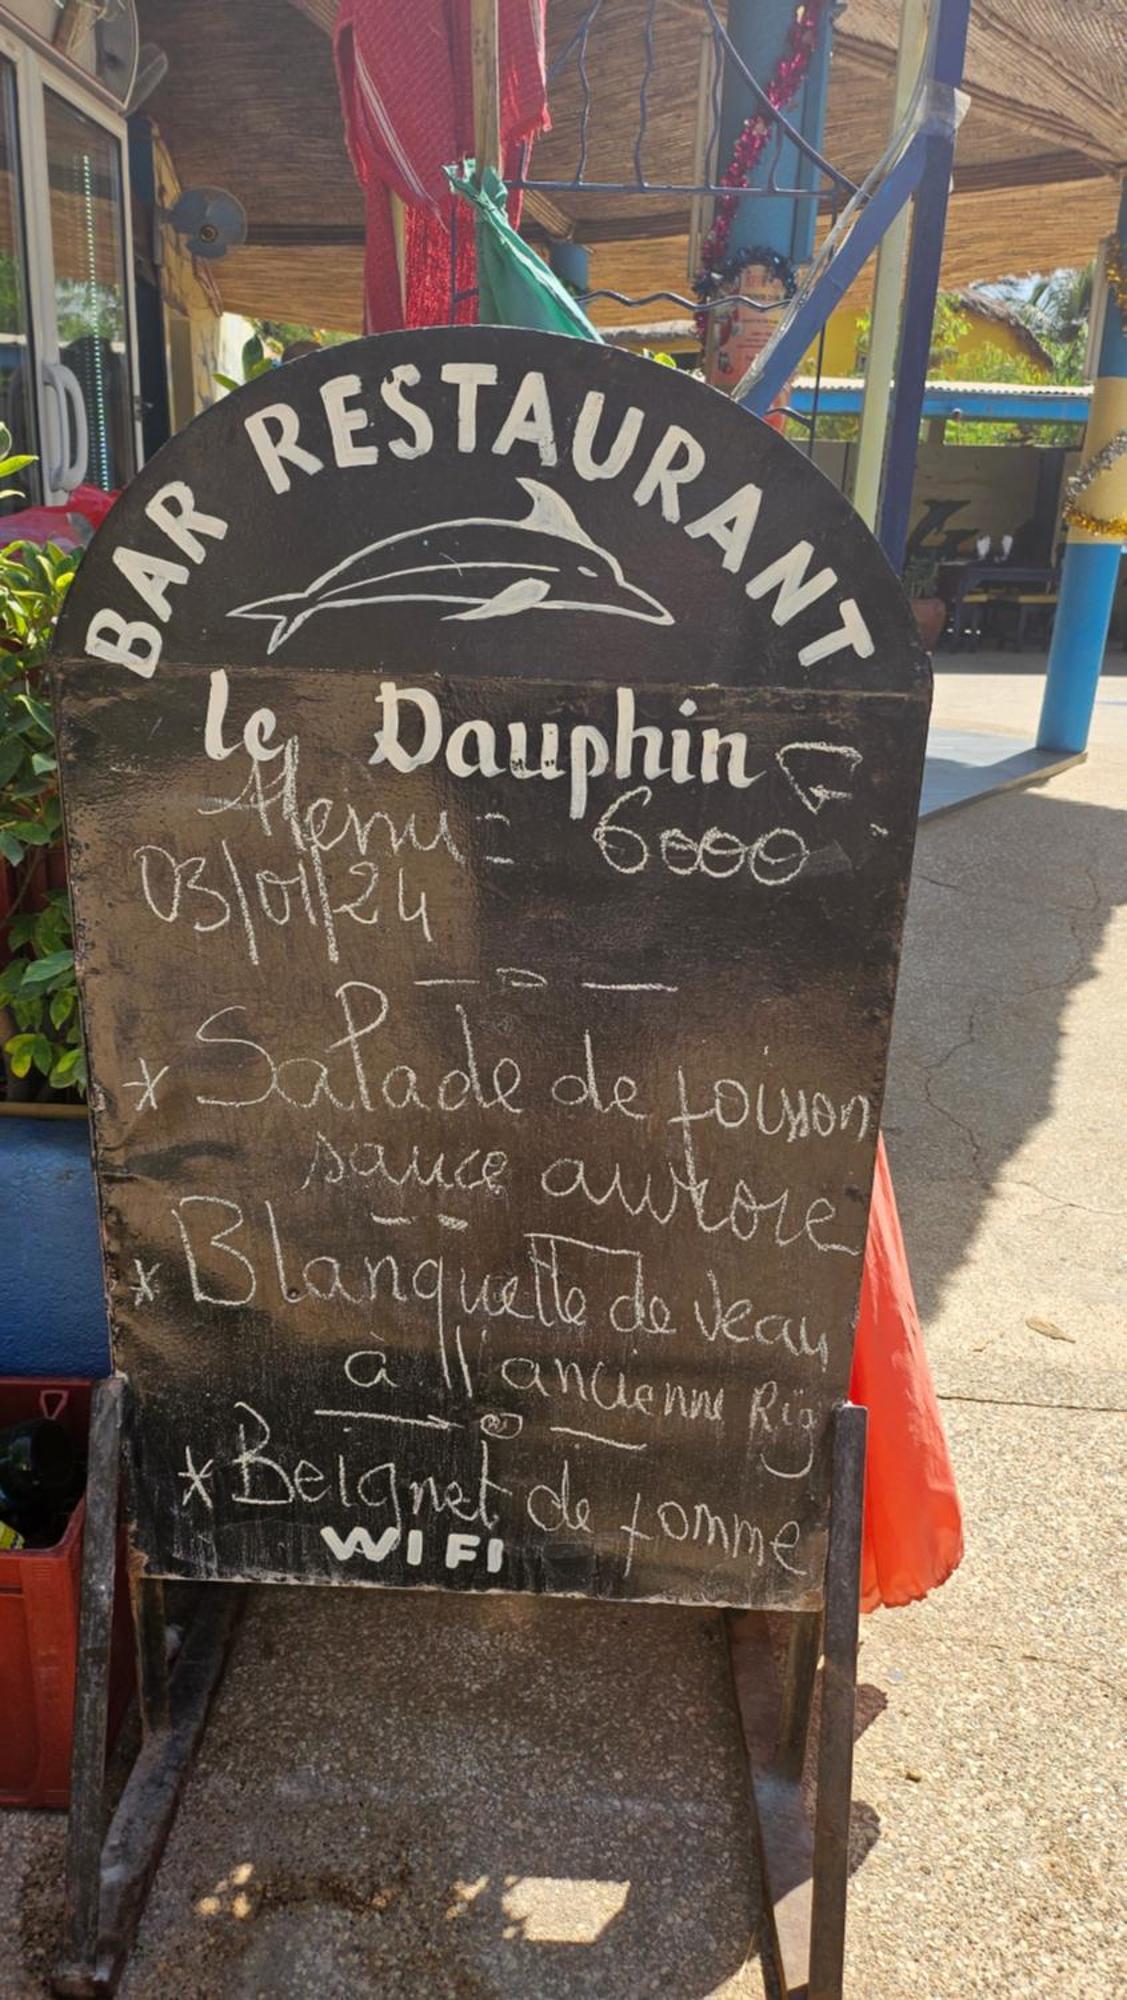 BAR RESTAURANT
le Dauphin
Menu = 6000
03/01/24
* Salade de poisson
sauce aurore
* Blanquette de veau
à l'ancienne Riz
* Beignet de pomme
WIFI